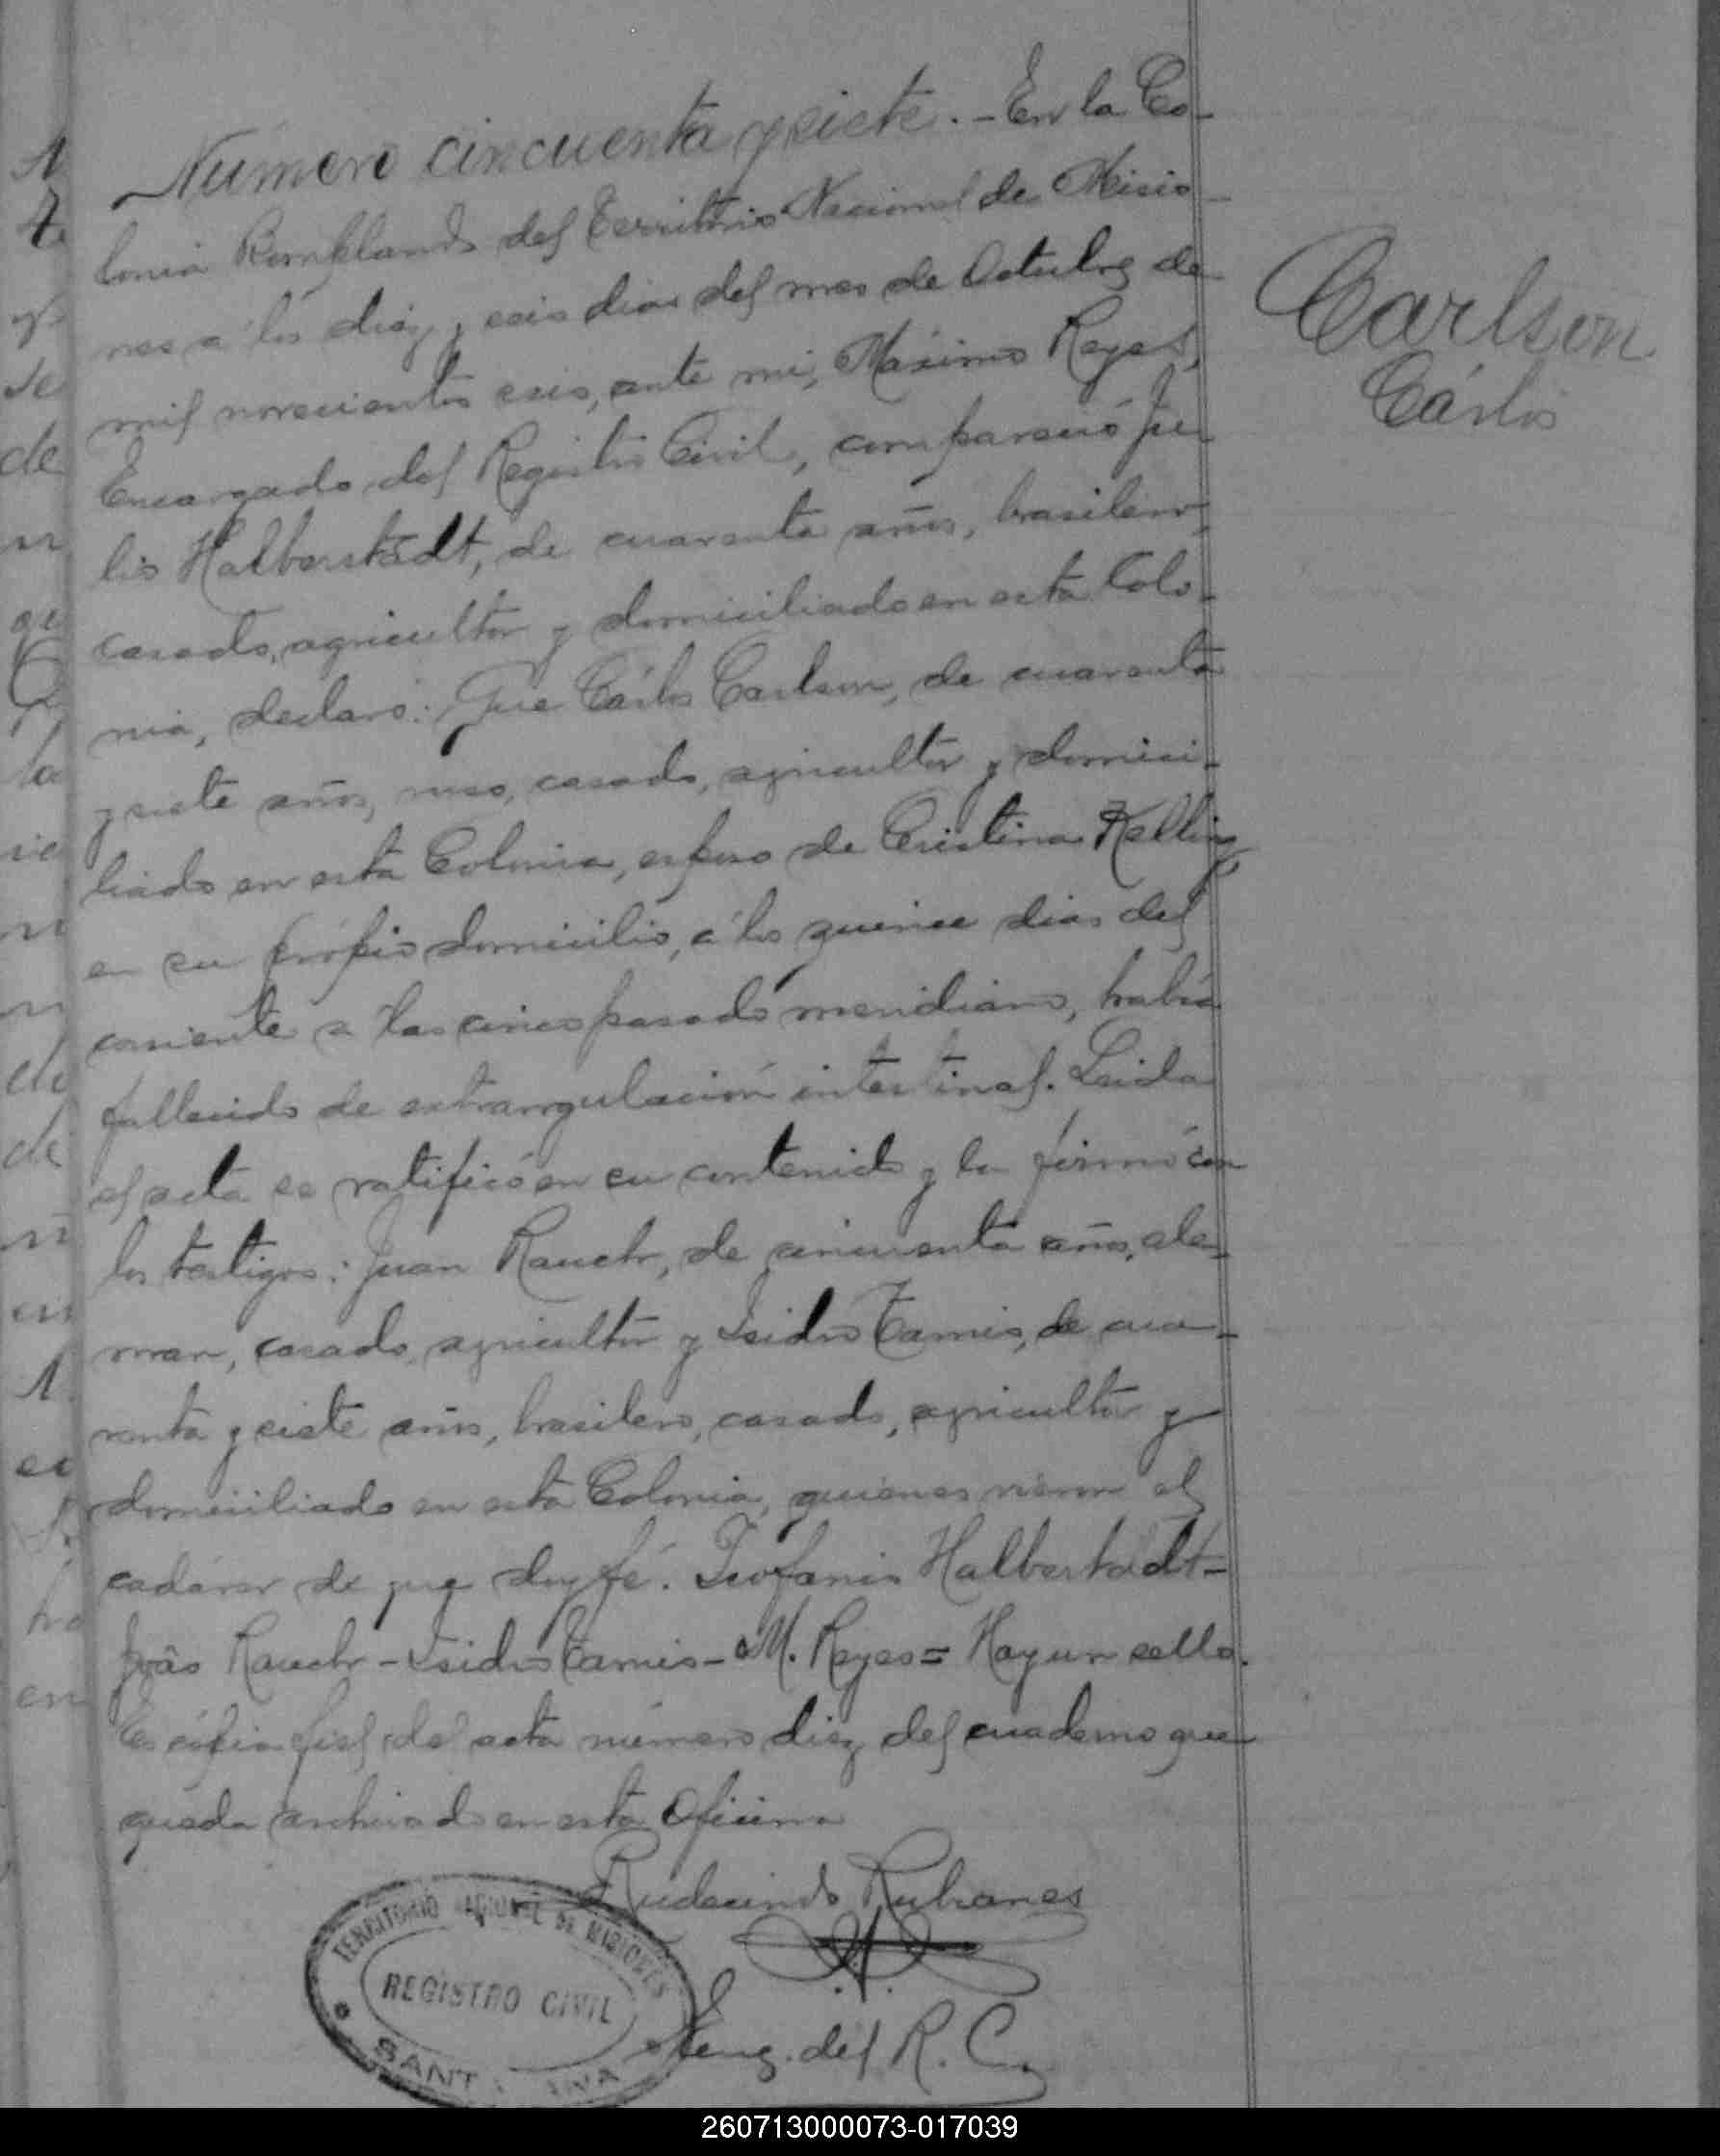 Número cincuenta y siete. - En la Co-
lonia Bompland del Territorio Nacional de Misio-
nes a los diez y seis dias del mes de Octubre de
mil novecientos seis, ante mi, Máximo Reyes,
Encargado del Registro Civil, compareció Ju-
lio Halberstadt, de cuarenta años, brasilero,
casado, agricultor y domiciliado en esta Colo-
nia, declaró: Que Cárlos Carlson, de cuarenta
y siete años, ruso, casado, agricultor y domici-
liado en esta Colonia, esposo de Cristina
en su própio domicilio, á los quince dias del
corriente a las cinco pasado meridiano, habia
fallecido de extrangulación intestinal. Leida
el acta se ratificó en su contenido y la firmó con
los testigos: Juan Rauch, de cincuenta años, ale-
man, casado, agricultor y Isidro Tamis, de cua-
renta y siete años, brasilero, casado, agricultor y
domiciliado en esta Colonia, quienes vieron el
cadáver de que doy fé. Halberstadt -
João Rauch - Isidro Tamis - M. Reyes = Hay un sello.
Es cópia fiel del acta número diez del cuaderno que
queda archivado en esta Oficina
Rudecindo Rubianes
Enc. del R. C.
Carlson
Cárlos
TERRITORIO NACIONAL DE MISIONES
REGISTRO CIVIL
SANTA ANA
260713000073-017039